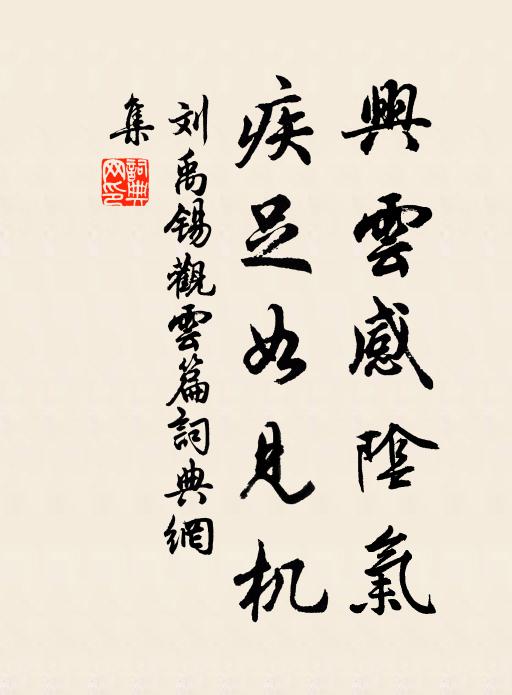 興雲感陰氣
疾足如見机
刘禹锡觀雲篇詞典網
集
詞典網印